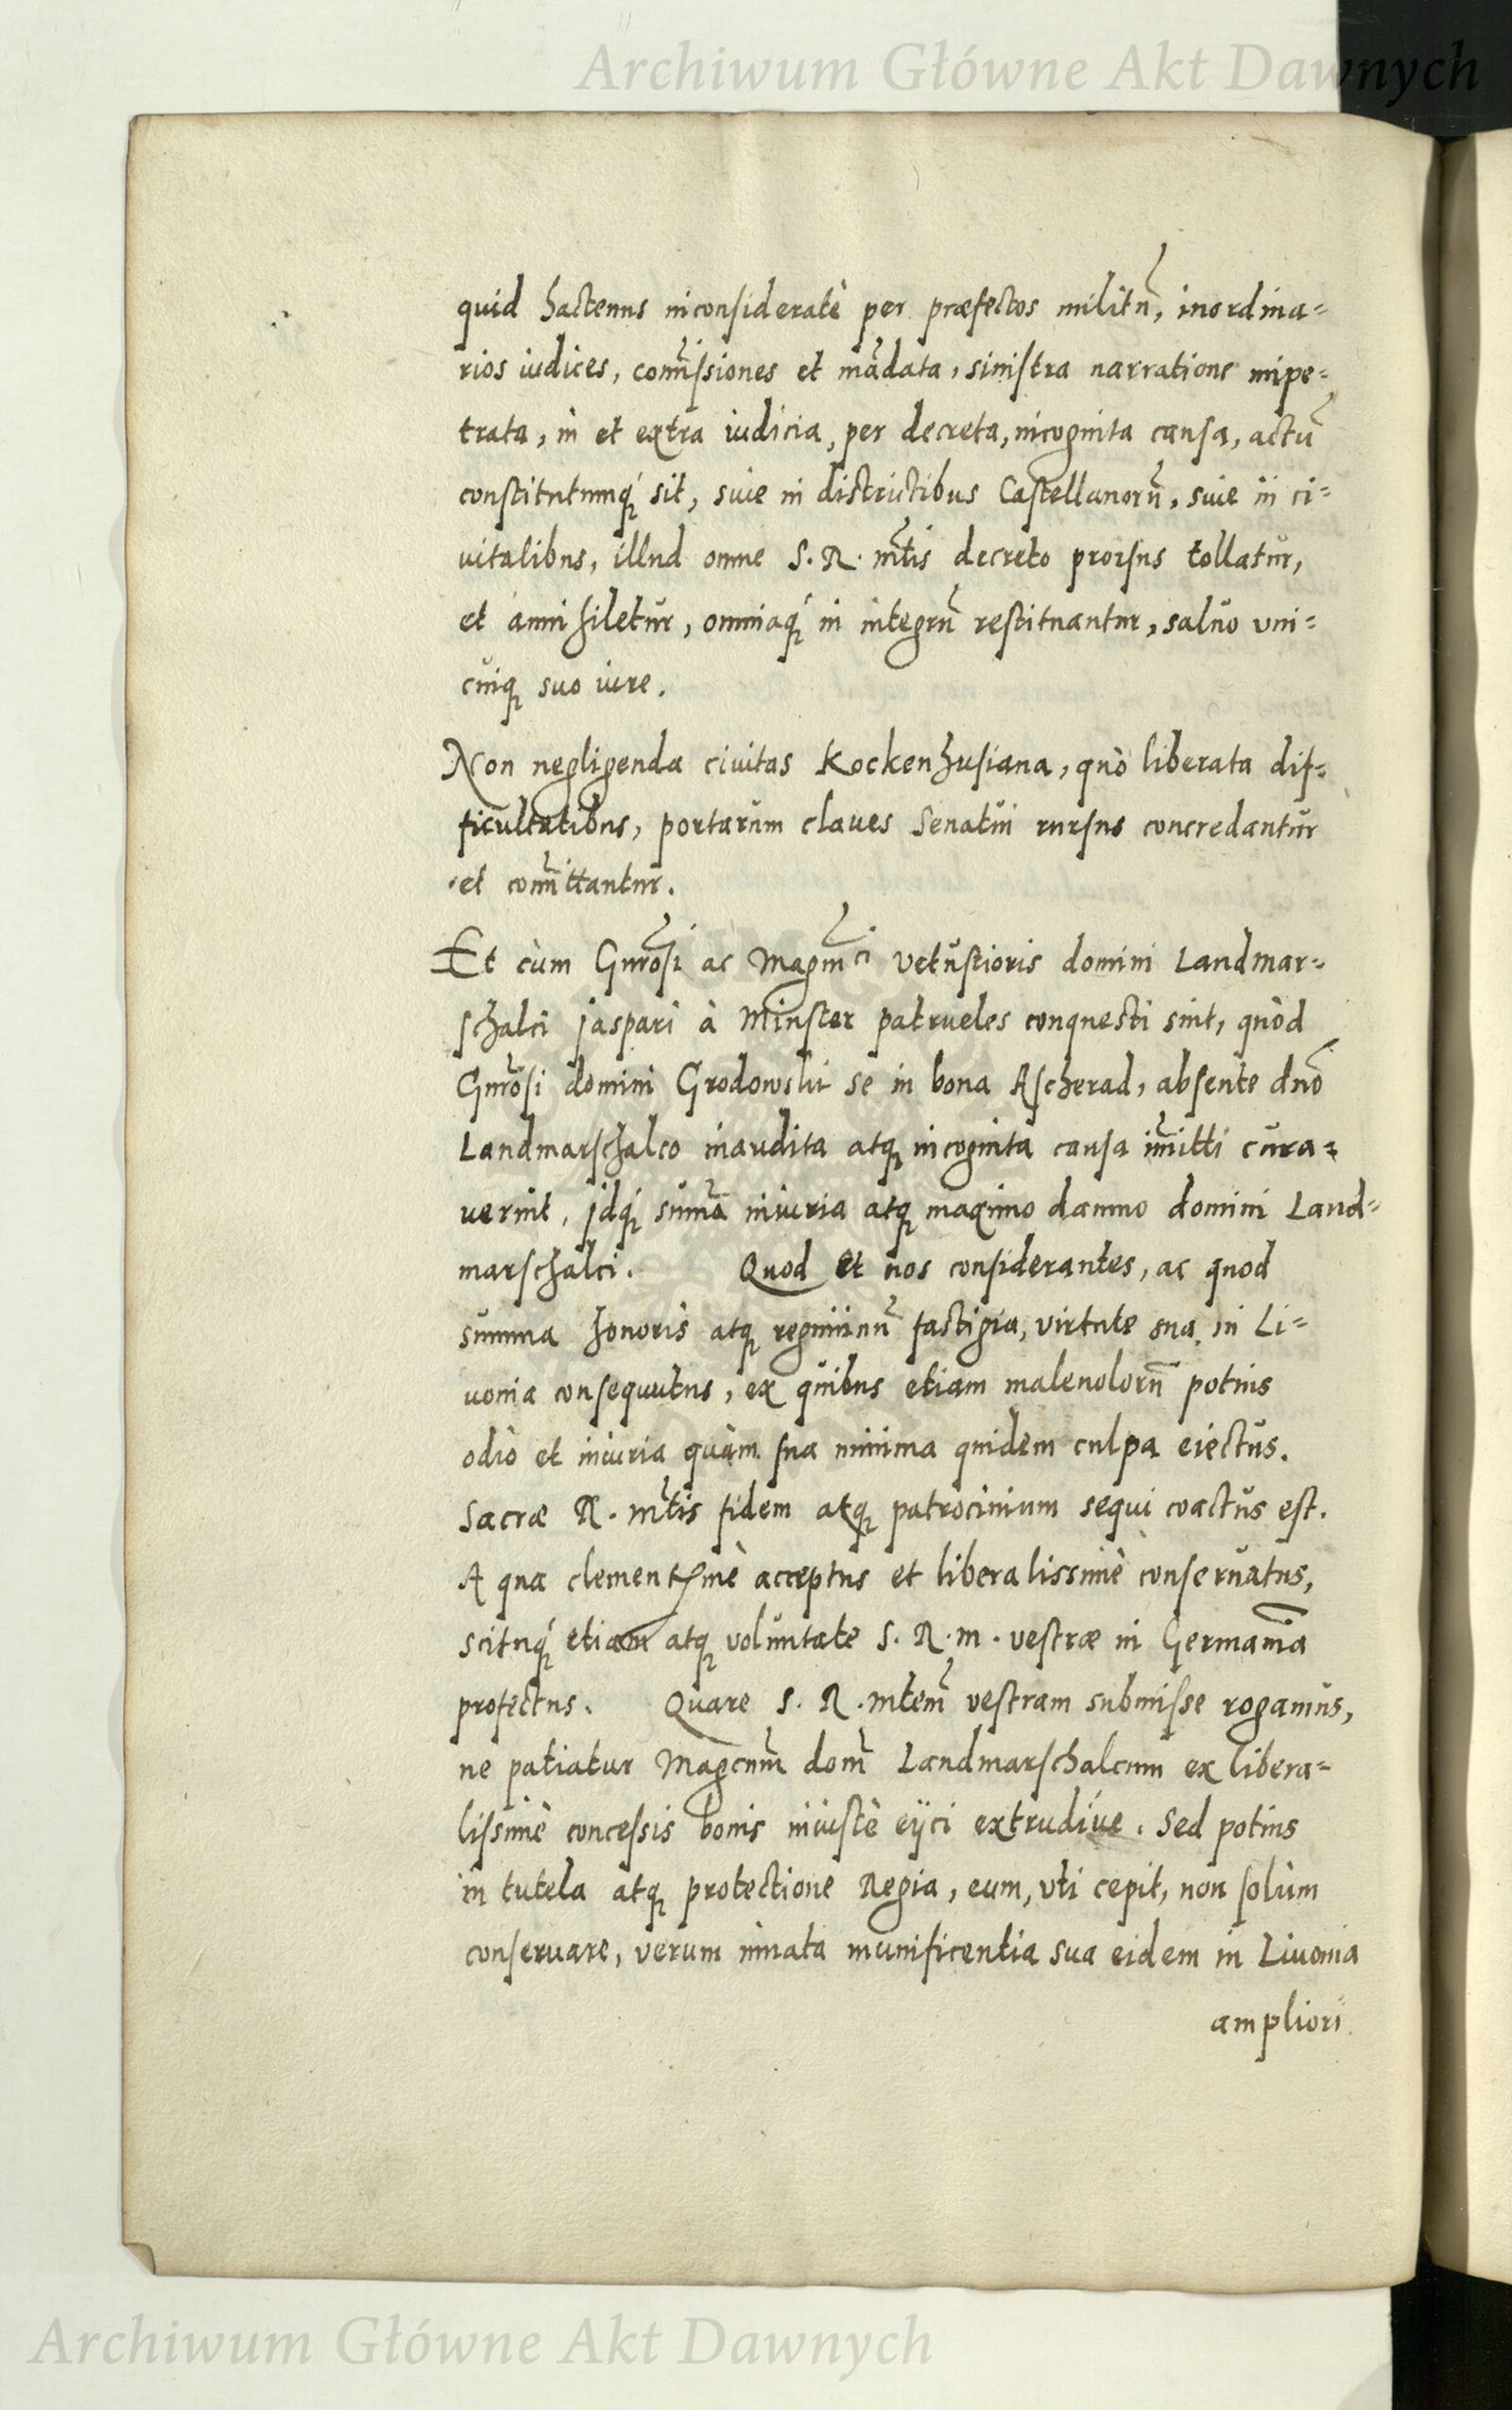 Archiwum Główne Akt Dawnych
quid hactenus inconsideratè per præfectos militũ, inordina=
rios iudices, com̃issiones et mãdata, sinistra narratione impe=
trata, in et extra iudicia, per decreta, incognita causa, actũ
constitutumq́ sit, siue in districtibus Castellanorũ, siue in ci=
uitatibus, illud omne S. R. mt̃is decreto prorsus tollatur,
et annihiletur, omniaq́ in integrũ restituantur, saluo vni=
cuiq suo iure.
Non negligenda ciuitas Kockenhusiana, quò liberata dif=
ficultatibus, portarum claues Senatui rursus concredantur
et com̃ittantur.
Et cùm Gnrõsi ac Magm̃ci vetustioris domini Landmar=
schalci Jaspari à Minster patrueles conquesti sint, quòd
Gnrõsi domini Grodowski se in bona Ascherad, absente dnõ
Landmarschalco inaudita atq incognita causa im̃itti cura=
uerint, jdq́ sum̃a iniuria atq maximo damno domini Land=
marschalci. Quod et nos considerantes, ac quod
summa honoris atq regiminũ fastigia, virtute sua in Li=
uonia consequutus, ex quibus etiam maleuolorũ potius
odio et iniuria quàm sua minima quidem culpa eiectus.
Sacræ R. mt̃is fidem atq patrocinium sequi coactus est.
A qua clementissimè acceptus et liberalissimè conseruatus,
scituq́ etiam atq voluntate S. R. m. vestræ in Germaniã
profectus. Quare S. R. mtem̃ vestram submisse rogamus,
ne patiatur Magcum̃ dom̃ Landmarschalcum ex libera=
lissimè concessis bonis iniustè eijci extrudiue. Sed potius
in tutela atq protectione Regia, eum, vti cepit, non solùm
conseruare, verum innata munificentia sua eidem in Liuonia
ampliori
Archiwum Główne Akt Dawnych